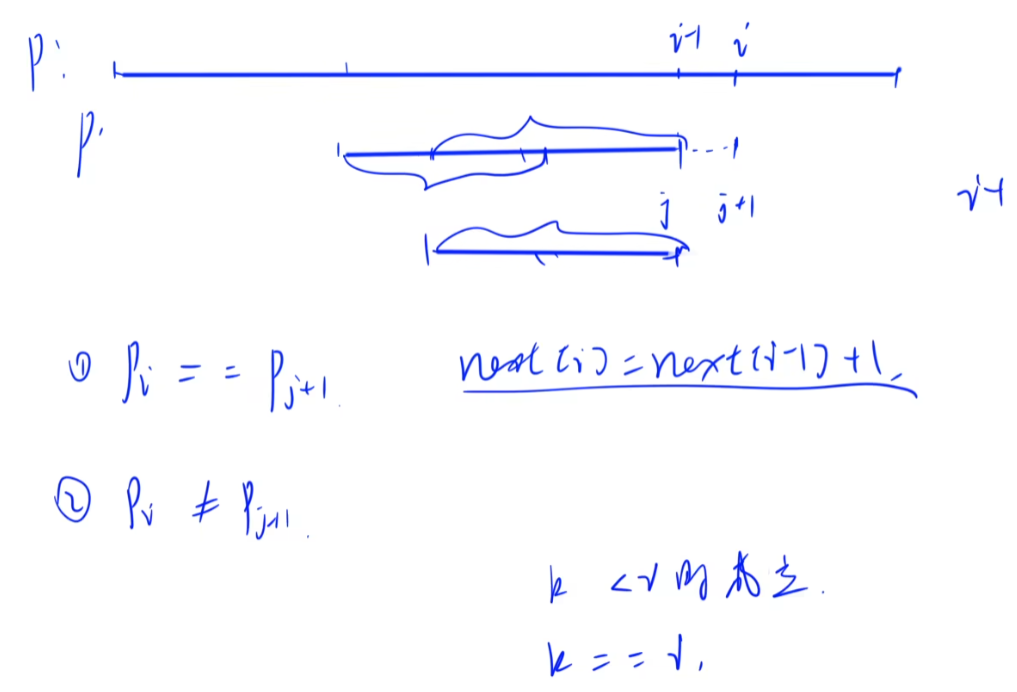 P:
i-1 i
P:
j j+1
i-1
① Pi == Pj+1.
next(i)=next(i-1)+1.
② Pi ≠ Pj+1.
k < i 时成立.
k == i.